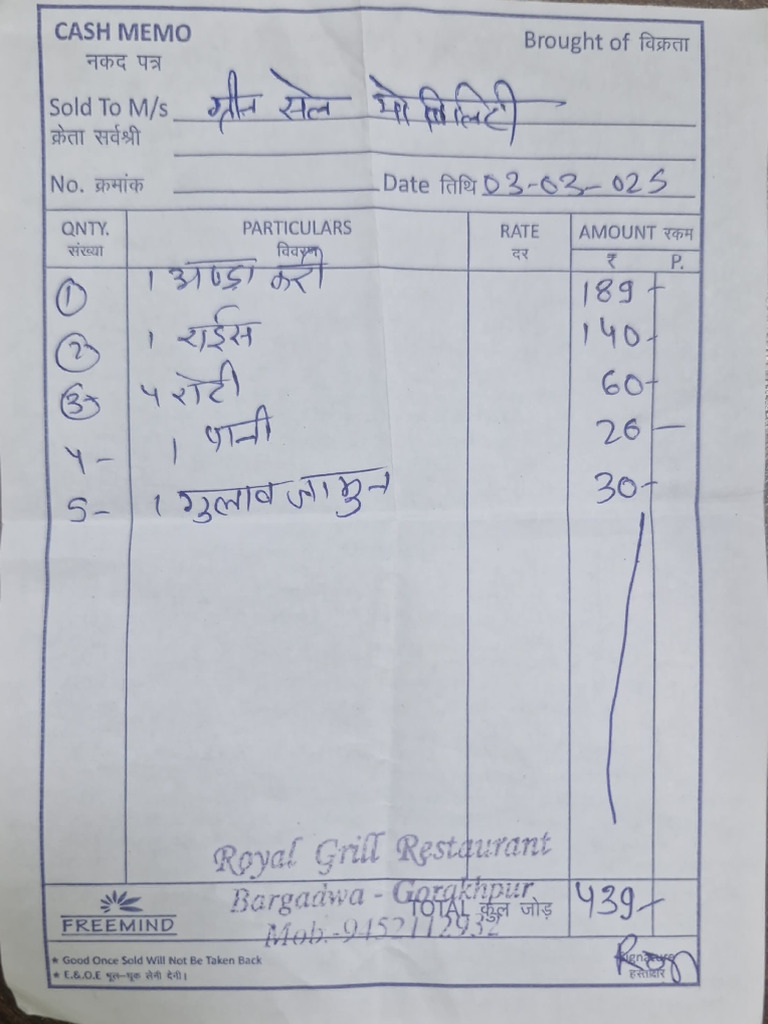 CASH MEMO
नकद पत्र
Brought of विक्रता
Sold To M/s ग्रीन सेल मोबिलिटी
क्रेता सर्वश्री
No. क्रमांक Date तिथि 03-03-025
QNTY. PARTICULARS RATE AMOUNT रकम
संख्या विवरण दर ₹ P.
① 1 अण्डा करी 189 -
② 1 राईस 140 -
③ ५ रोटी 60 -
५ - 1 पानी 20 -
5 - 1 गुलाब जामुन 30 -
Royal Grill Restaurant
Bargadwa - Gorakhpur
Mob.-9452112932
FREEMIND
TOTAL कुल जोड़ ५39 -
* Good Once Sold Will Not Be Taken Back
* E.&O.E भूल-चूक लेनी देनी।
Signature
हस्ताक्षर